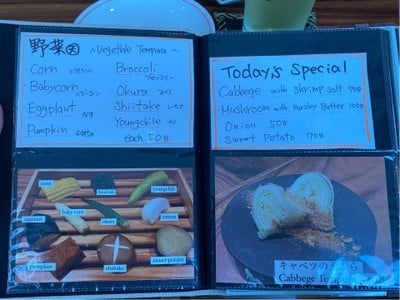 野菜
~Vegetable Tempura~
Corn
Broccoli
Babycorn
Okura
Eggplant
Shiitake
Pumpkin
Youngchile
Each 50B
Today's Special
Cabbege with shrimp salt 70B
Mushroom with Parsley Butter 100B
Onion 50B
Sweet Potato 70B
corn
broccoli
young chili
eggplant
baby corn
okura
onion
pumpkin
shiitake
sweet potato
キャベツの
Cabbege Tempura